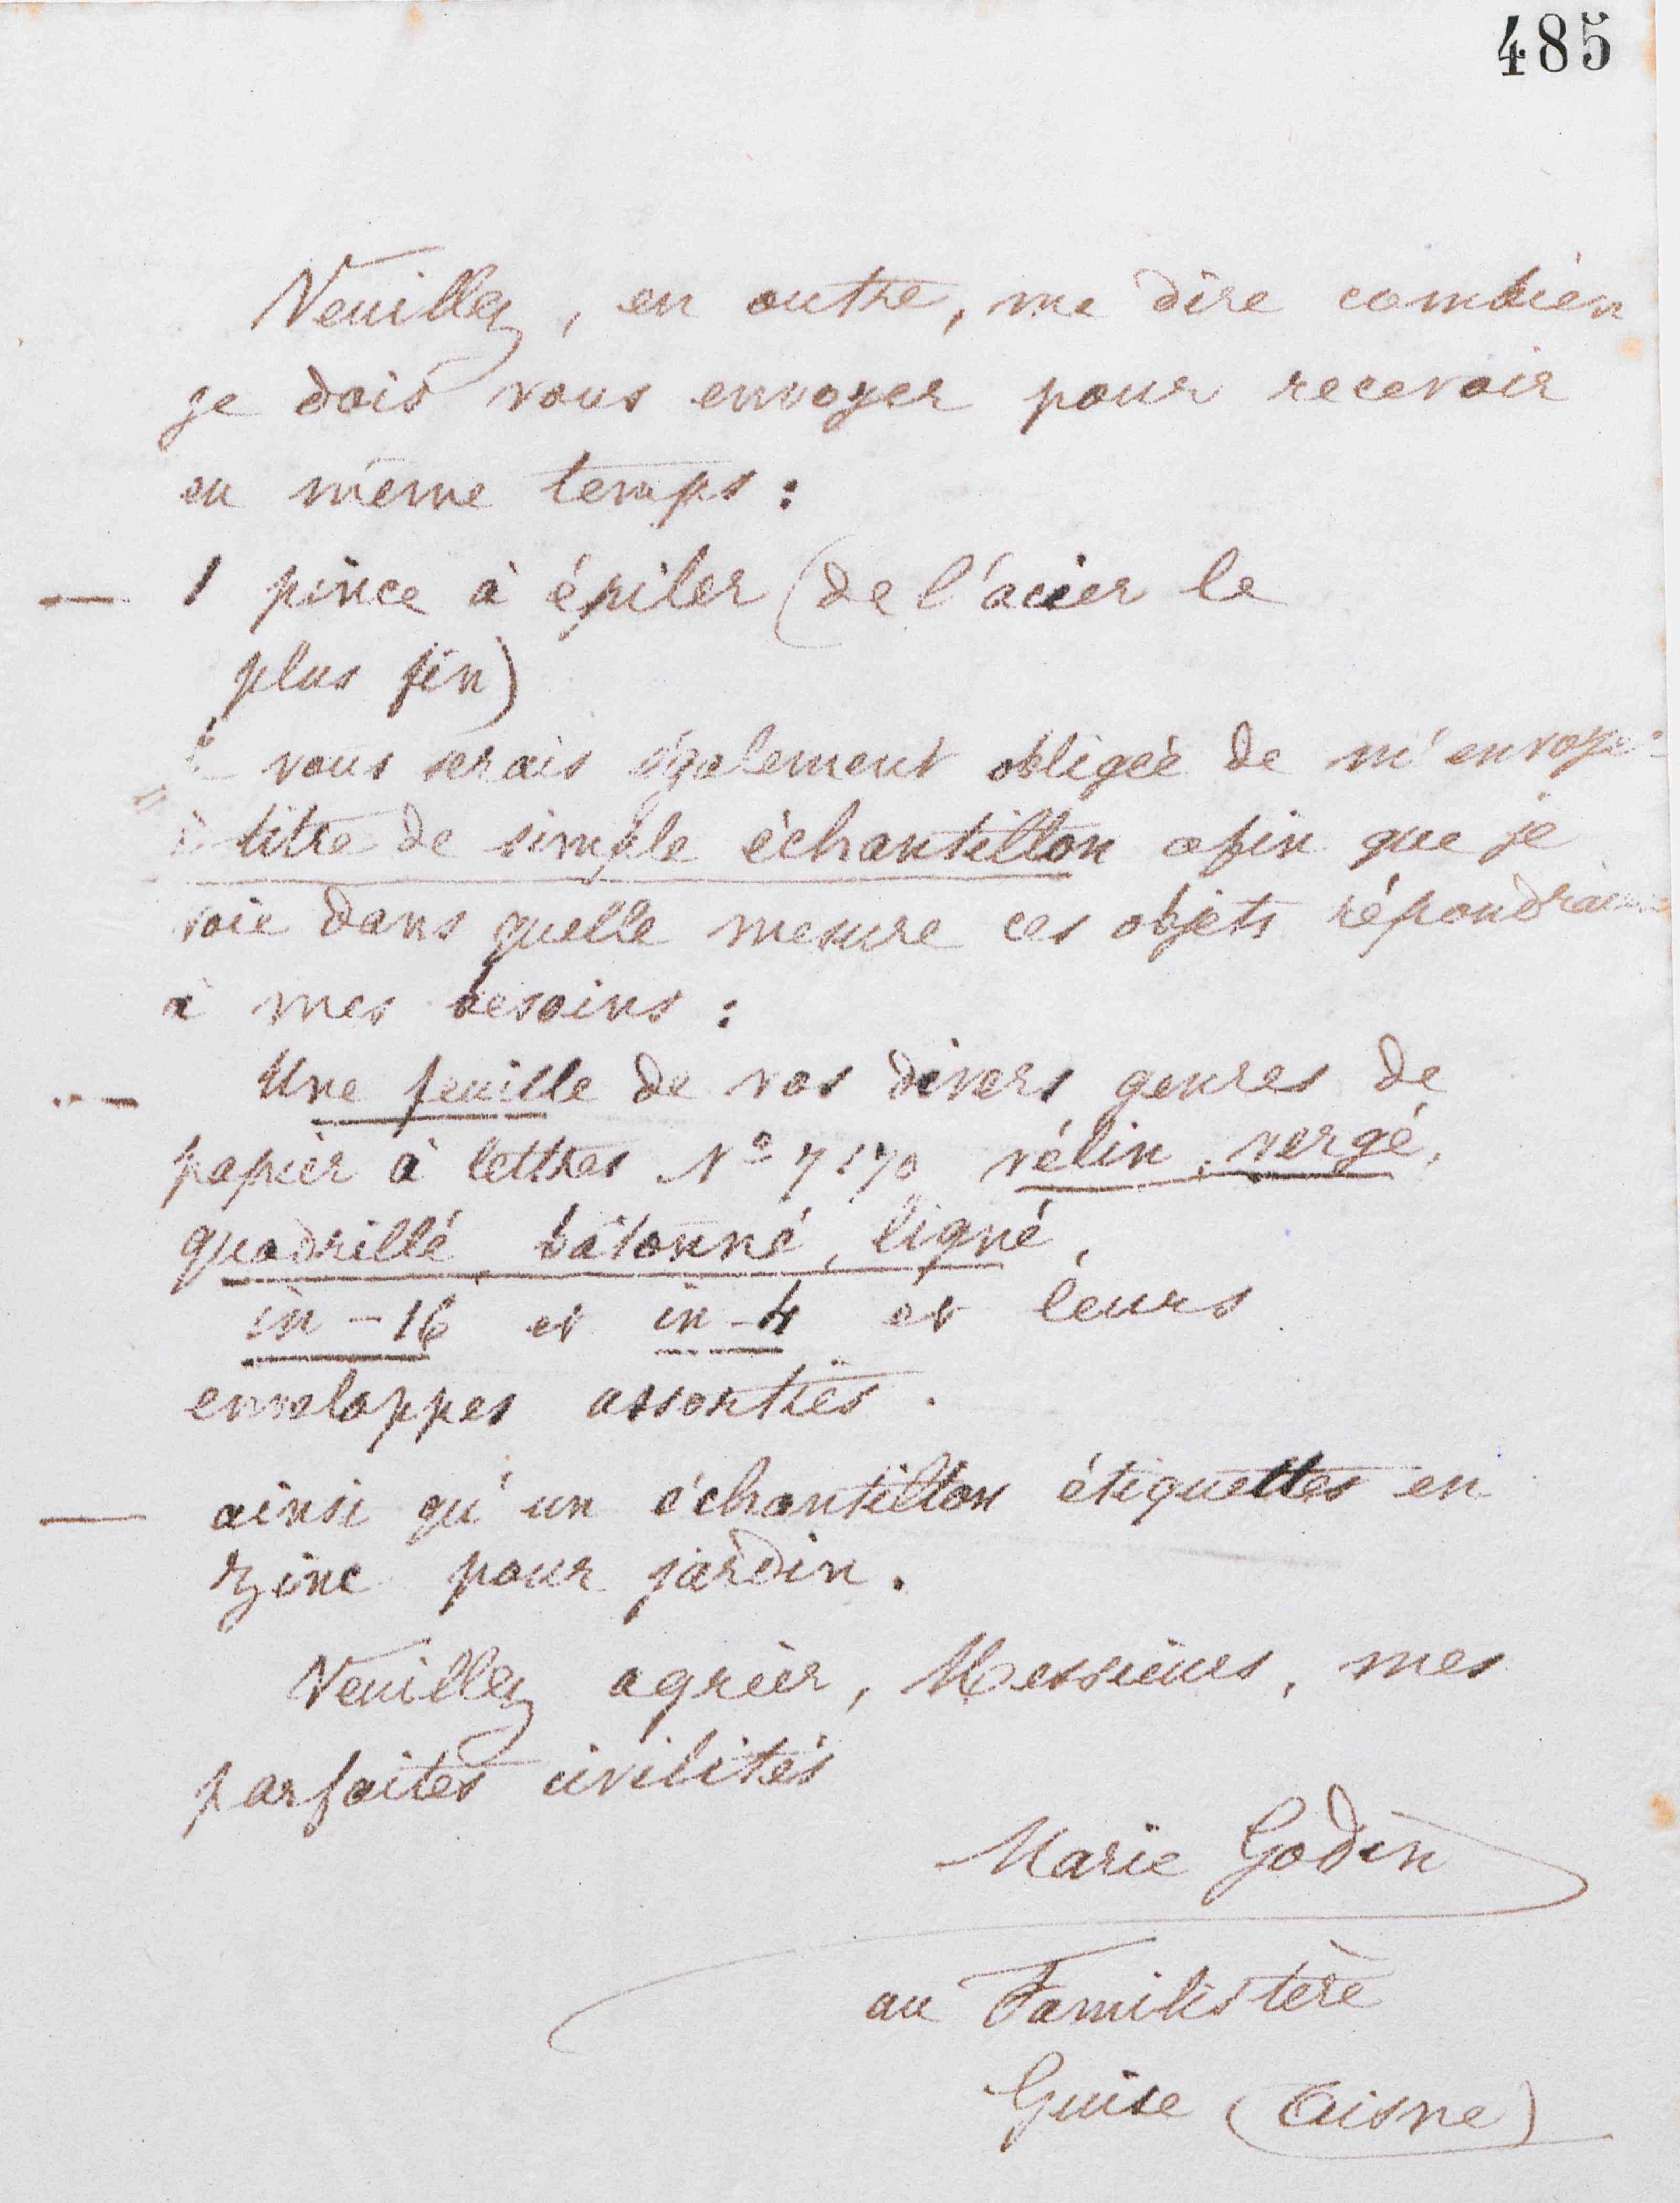 485
Veuillez, en outre, me dire combien
je dois vous envoyer pour recevoir
en même temps :
— 1 pince à épiler (de l'acier le
plus fin)
vous serais également obligée de m'envoyer
à titre de simple échantillon afin que je
voie dans quelle mesure ces objets répondraient
à mes besoins :
— Une feuille de vos divers genres de
papier à lettres Nº 7170 vélin, vergé,
quadrillé, bâtonné, ligné,
in-16 et in-4 et leurs
enveloppes assorties.
— ainsi qu'un échantillon étiquettes en
zinc pour jardin.
Veuillez agréer, Messieurs, mes
parfaites civilités
Marie Godin
au Familistère
Guise (Aisne)